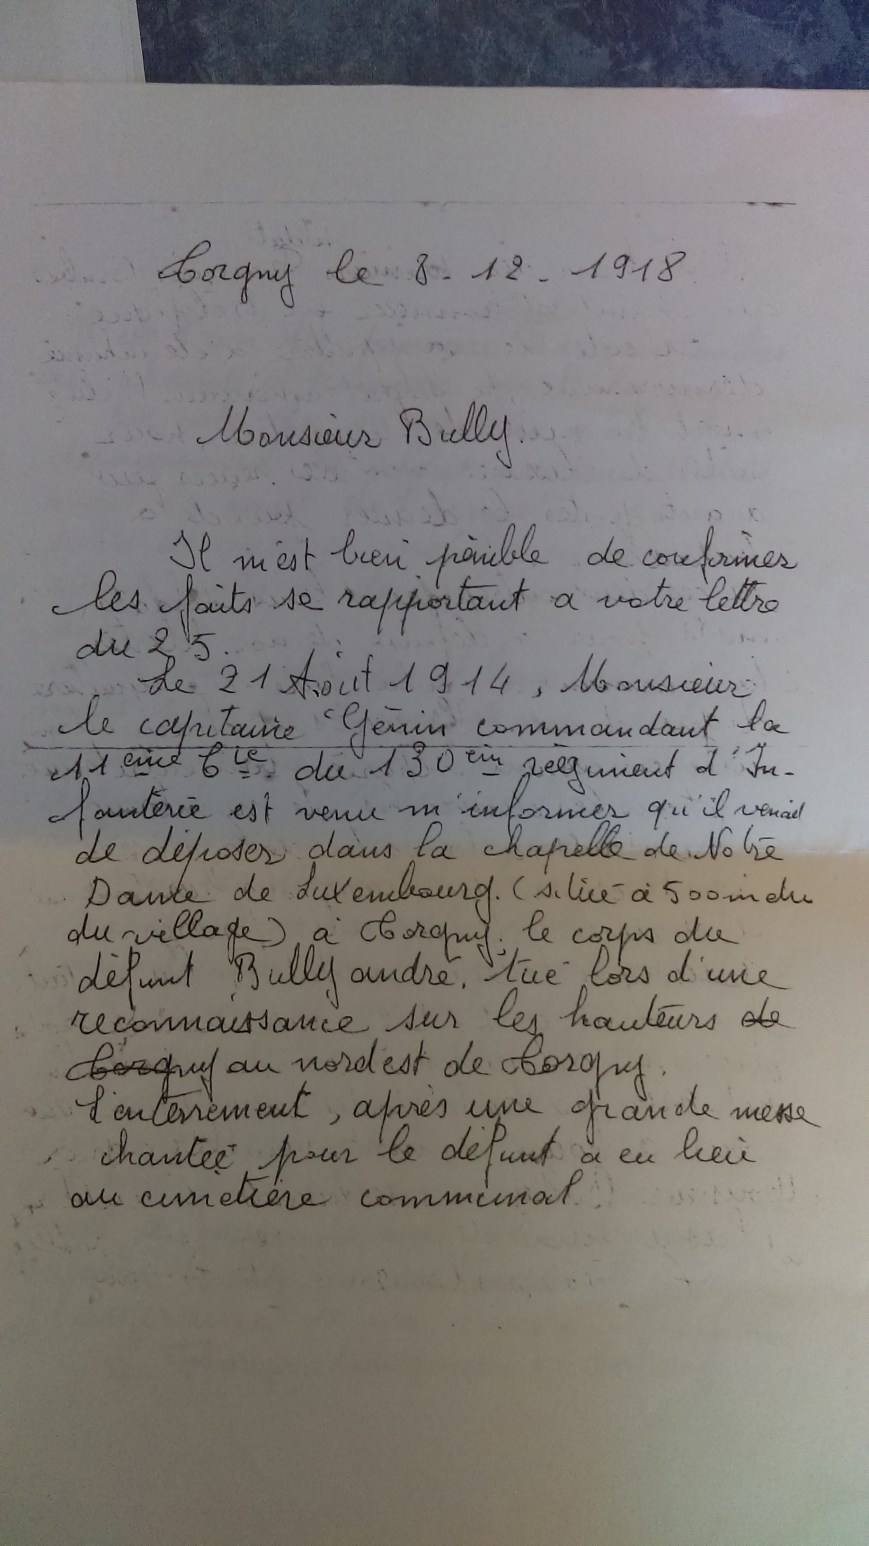 Torgny le 8-12-1918
Monsieur Bully.
Il m'est bien pénible de confirmer
les faits se rapportant a votre lettre
du 25.
Le 21 Août 1914, Monsieur
le capitaine Génin commandant la
11ème Cie du 130èm régiment d'In-
fanterie est venu m'informer qu'il venait
de déposer dans la chapelle de Notre
Dame de Luxembourg. (située à 500m du
du village) à Torgny, le corps du
défunt Bully andré, tué lors d'une
reconnaissance sur les hauteurs de
Torgny au nord est de Torgny.
L'enterrement, après une grande messe
chantée pour le défunt a eu lieu
au cimetière communal.